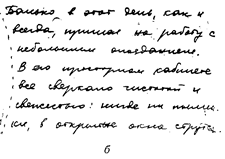 Только в этот день, как и
всегда, пришел на работу с
небольшим опозданием.
В его просторном кабинете
все сверкало чистотой и
свежестью: нигде ни пылин-
ки, в открытые окна струил.
б